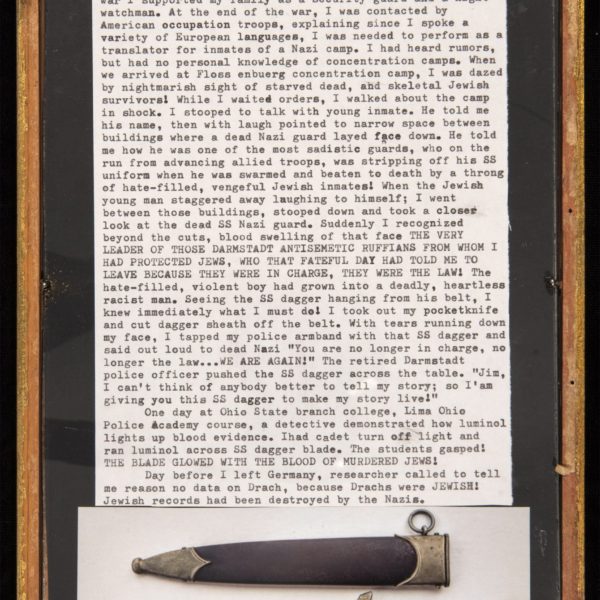 war I supported my family as a security guard and a night
watchman. At the end of the war, I was contacted by
American occupation troops, explaining since I spoke a
variety of European languages, I was needed to perform as a
translator for inmates of a Nazi camp. I had heard rumors,
but had no personal knowledge of concentration camps. When
we arrived at Floss enbuerg concentration camp, I was dazed
by nightmarish sight of starved dead, and skeletal Jewish
survivors! While I waited orders, I walked about the camp
in shock. I stooped to talk with young inmate. He told me
his name, then with laugh pointed to narrow space between
buildings where a dead Nazi guard layed face down. He told
me how he was one of the most sadistic guards, who on the
run from advancing allied troops, was stripping off his SS
uniform when he was swarmed and beaten to death by a throng
of hate-filled, vengeful Jewish inmates! When the Jewish
young man staggered away laughing to himself; I went
between those buildings, stooped down and took a closer
look at the dead SS Nazi guard. Suddenly I recognized
beyond the cuts, blood swelling of that face THE VERY
LEADER OF THOSE DARMSTADT ANTISEMETIC RUFFIANS FROM WHOM I
HAD PROTECTED JEWS, WHO THAT FATEFUL DAY HAD TOLD ME TO
LEAVE BECAUSE THEY WERE IN CHARGE, THEY WERE THE LAW! The
hate-filled, violent boy had grown into a deadly, heartless
racist man. Seeing the SS dagger hanging from his belt, I
knew immediately what I must do! I took out my pocketknife
and cut dagger sheath off the belt. With tears running down
my face, I tapped my police armband with that SS dagger and
said out loud to dead Nazi "You are no longer in charge, no
longer the law...WE ARE AGAIN!" The retired Darmstadt
police officer pushed the SS dagger across the table. "Jim,
I can't think of anybody better to tell my story; so I'am
giving you this SS dagger to make my story live!"
One day at Ohio State branch college, Lima Ohio
Police Academy course, a detective demonstrated how luminol
lights up blood evidence. Ihad cadet turn off light and
ran luminol across SS dagger blade. The students gasped!
THE BLADE GLOWED WITH THE BLOOD OF MURDERED JEWS!
Day before I left Germany, researcher called to tell
me reason no data on Drach, because Drachs were JEWISH!
Jewish records had been destroyed by the Nazis.